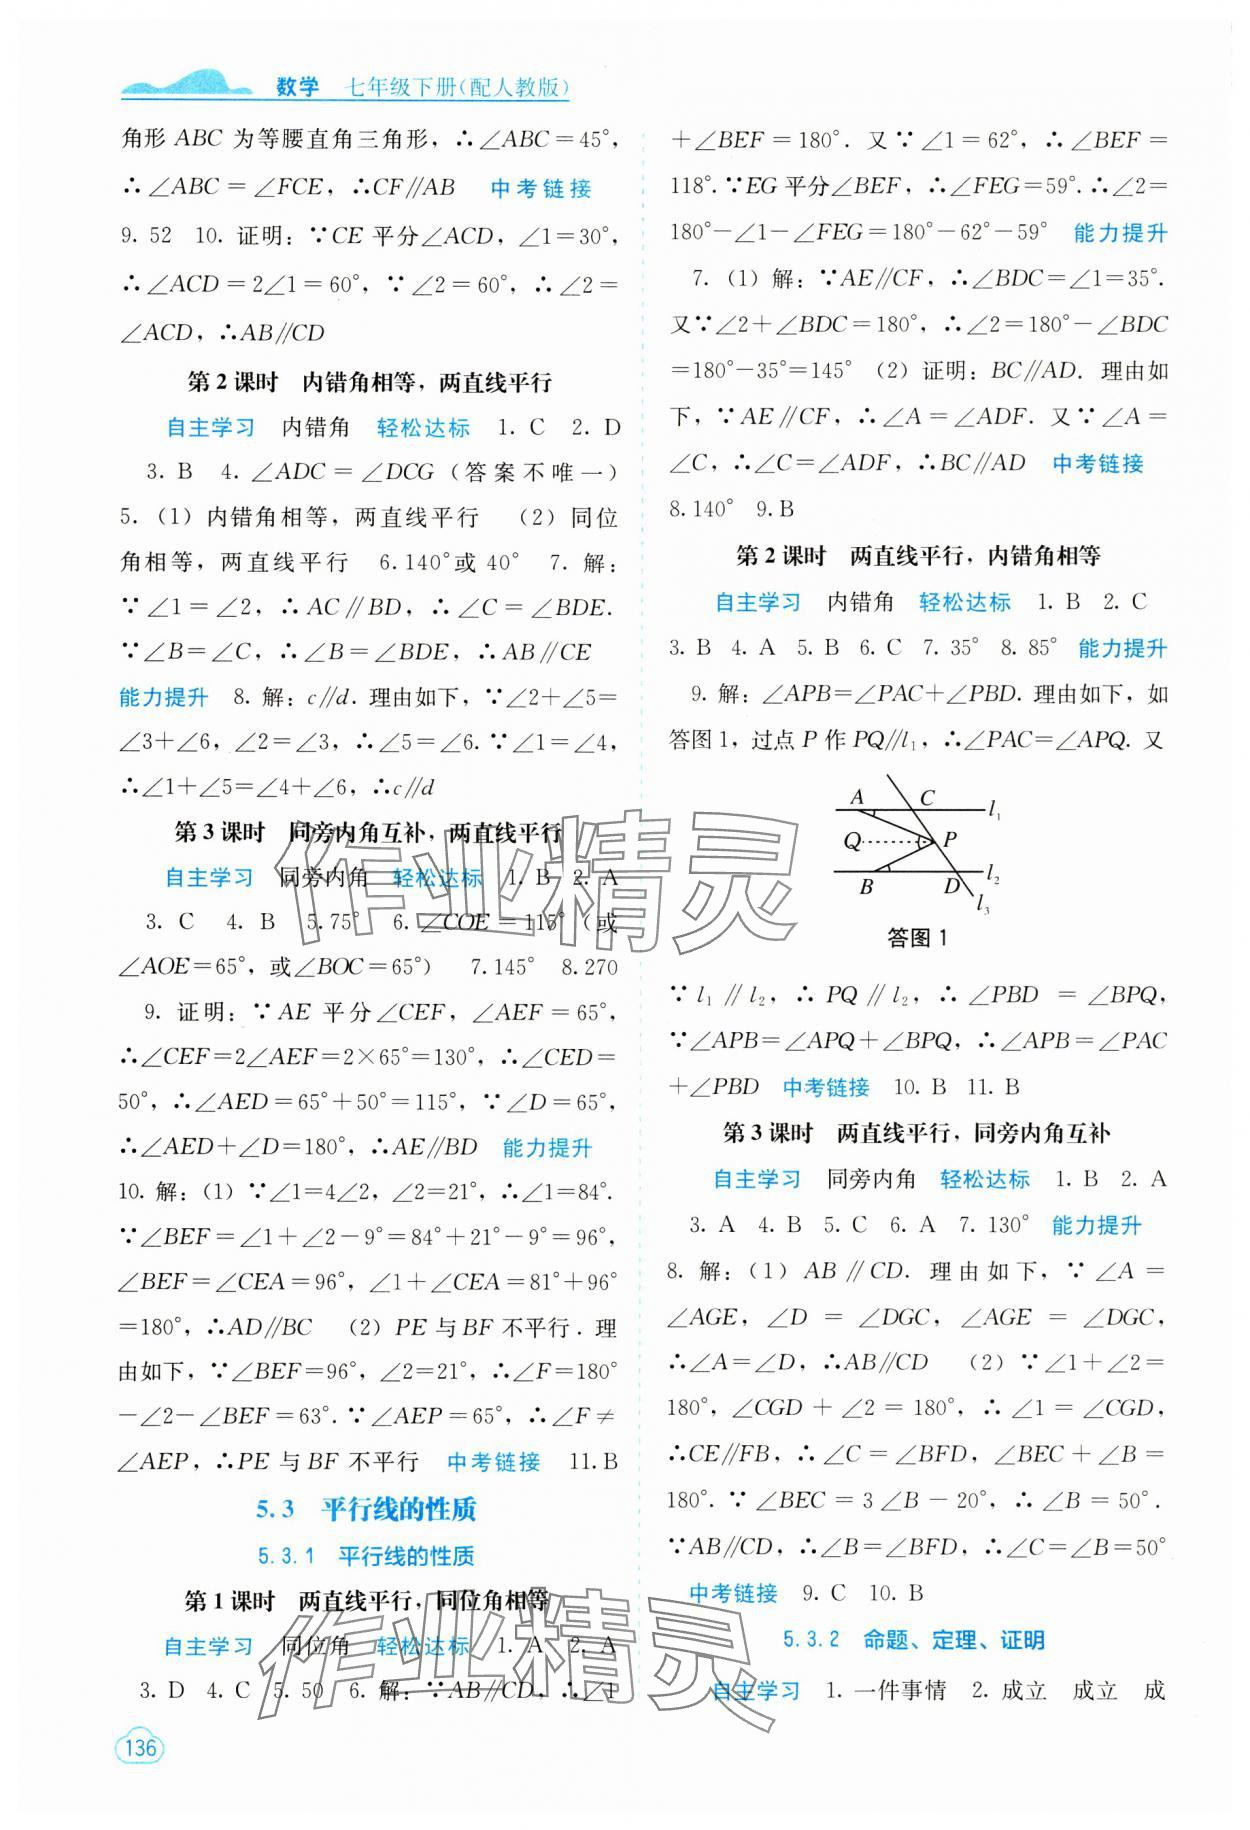 数学 七年级下册(配人教版)
角形 ABC 为等腰直角三角形，∴∠ABC=45°，
∴∠ABC=∠FCE，∴CF∥AB 中考链接
9. 52 10. 证明：∵CE 平分∠ACD，∠1=30°，
∴∠ACD=2∠1=60°，∵∠2=60°，∴∠2=
∠ACD，∴AB∥CD
第 2 课时 内错角相等，两直线平行
自主学习 内错角 轻松达标 1. C 2. D
3. B 4. ∠ADC=∠DCG（答案不唯一）
5.（1）内错角相等，两直线平行 （2）同位
角相等，两直线平行 6.140°或 40° 7. 解：
∵∠1=∠2，∴AC∥BD，∴∠C=∠BDE.
∵∠B=∠C，∴∠B=∠BDE，∴AB∥CE
能力提升 8. 解：c∥d. 理由如下，∵∠2+∠5=
∠3+∠6，∠2=∠3，∴∠5=∠6.∵∠1=∠4，
∴∠1+∠5=∠4+∠6，∴c∥d
第 3 课时 同旁内角互补，两直线平行
自主学习 同旁内角 轻松达标 1. B 2. A
3. C 4. B 5.75° 6. ∠COE=115°（或
∠AOE=65°，或∠BOC=65°） 7.145° 8.270
9. 证明：∵AE 平分∠CEF，∠AEF=65°，
∴∠CEF=2∠AEF=2×65°=130°，∴∠CED=
50°，∴∠AED=65°+50°=115°，∵∠D=65°，
∴∠AED+∠D=180°，∴AE∥BD 能力提升
10. 解：（1）∵∠1=4∠2，∠2=21°，∴∠1=84°.
∵∠BEF=∠1+∠2-9°=84°+21°-9°=96°，
∠BEF=∠CEA=96°，∠1+∠CEA=81°+96°
=180°，∴AD∥BC （2）PE 与 BF 不平行. 理
由如下，∵∠BEF=96°，∠2=21°，∴∠F=180°
-∠2-∠BEF=63°.∵∠AEP=65°，∴∠F≠
∠AEP，∴PE 与 BF 不平行 中考链接 11. B
5.3 平行线的性质
5.3.1 平行线的性质
第 1 课时 两直线平行，同位角相等
自主学习 同位角 轻松达标 1. A 2. A
3. D 4. C 5. 50 6. 解：∵AB∥CD，∴∠1
136
+∠BEF=180°. 又∵∠1=62°，∴∠BEF=
118°.∵EG 平分∠BEF，∴∠FEG=59°.∴∠2=
180°-∠1-∠FEG=180°-62°-59° 能力提升
7.（1）解：∵AE∥CF，∴∠BDC=∠1=35°.
又∵∠2+∠BDC=180°，∴∠2=180°-∠BDC
=180°-35°=145° （2）证明：BC∥AD. 理由如
下，∵AE∥CF，∴∠A=∠ADF. 又∵∠A=
∠C，∴∠C=∠ADF，∴BC∥AD 中考链接
8.140° 9. B
第 2 课时 两直线平行，内错角相等
自主学习 内错角 轻松达标 1. B 2. C
3. B 4. A 5. B 6. C 7. 35° 8. 85° 能力提升
9. 解：∠APB=∠PAC+∠PBD. 理由如下，如
答图 1，过点 P 作 PQ∥l₁，∴∠PAC=∠APQ. 又
A C l₁
Q P
B D l₂
l₃
答图 1
∵l₁∥l₂，∴PQ∥l₂，∴∠PBD=∠BPQ，
∵∠APB=∠APQ+∠BPQ，∴∠APB=∠PAC
+∠PBD 中考链接 10. B 11. B
第 3 课时 两直线平行，同旁内角互补
自主学习 同旁内角 轻松达标 1. B 2. A
3. A 4. B 5. C 6. A 7. 130° 能力提升
8. 解：（1）AB∥CD. 理由如下，∵∠A=
∠AGE，∠D=∠DGC，∠AGE=∠DGC，
∴∠A=∠D，∴AB∥CD （2）∵∠1+∠2=
180°，∠CGD+∠2=180°，∴∠1=∠CGD，
∴CE∥FB，∴∠C=∠BFD，∠BEC+∠B=
180°.∵∠BEC=3∠B-20°，∴∠B=50°.
∵AB∥CD，∴∠B=∠BFD，∴∠C=∠B=50°
中考链接 9. C 10. B
5.3.2 命题、定理、证明
自主学习 1. 一件事情 2. 成立 成立 成
作业精灵
作业精灵